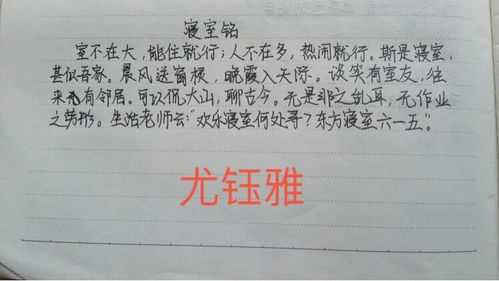 寝室铭
室不在大，能住就行；人不在多，热闹就行。斯是寝室，
甚似吾家。晨风送窗棂，晚霞入天际。谈笑有室友，往
来有邻居。可以侃大山，聊古今。无是非之乱耳，无作业
之劳形。生活老师云：“欢乐寝室何处寻？东方寝室六一五”。
尤钰雅